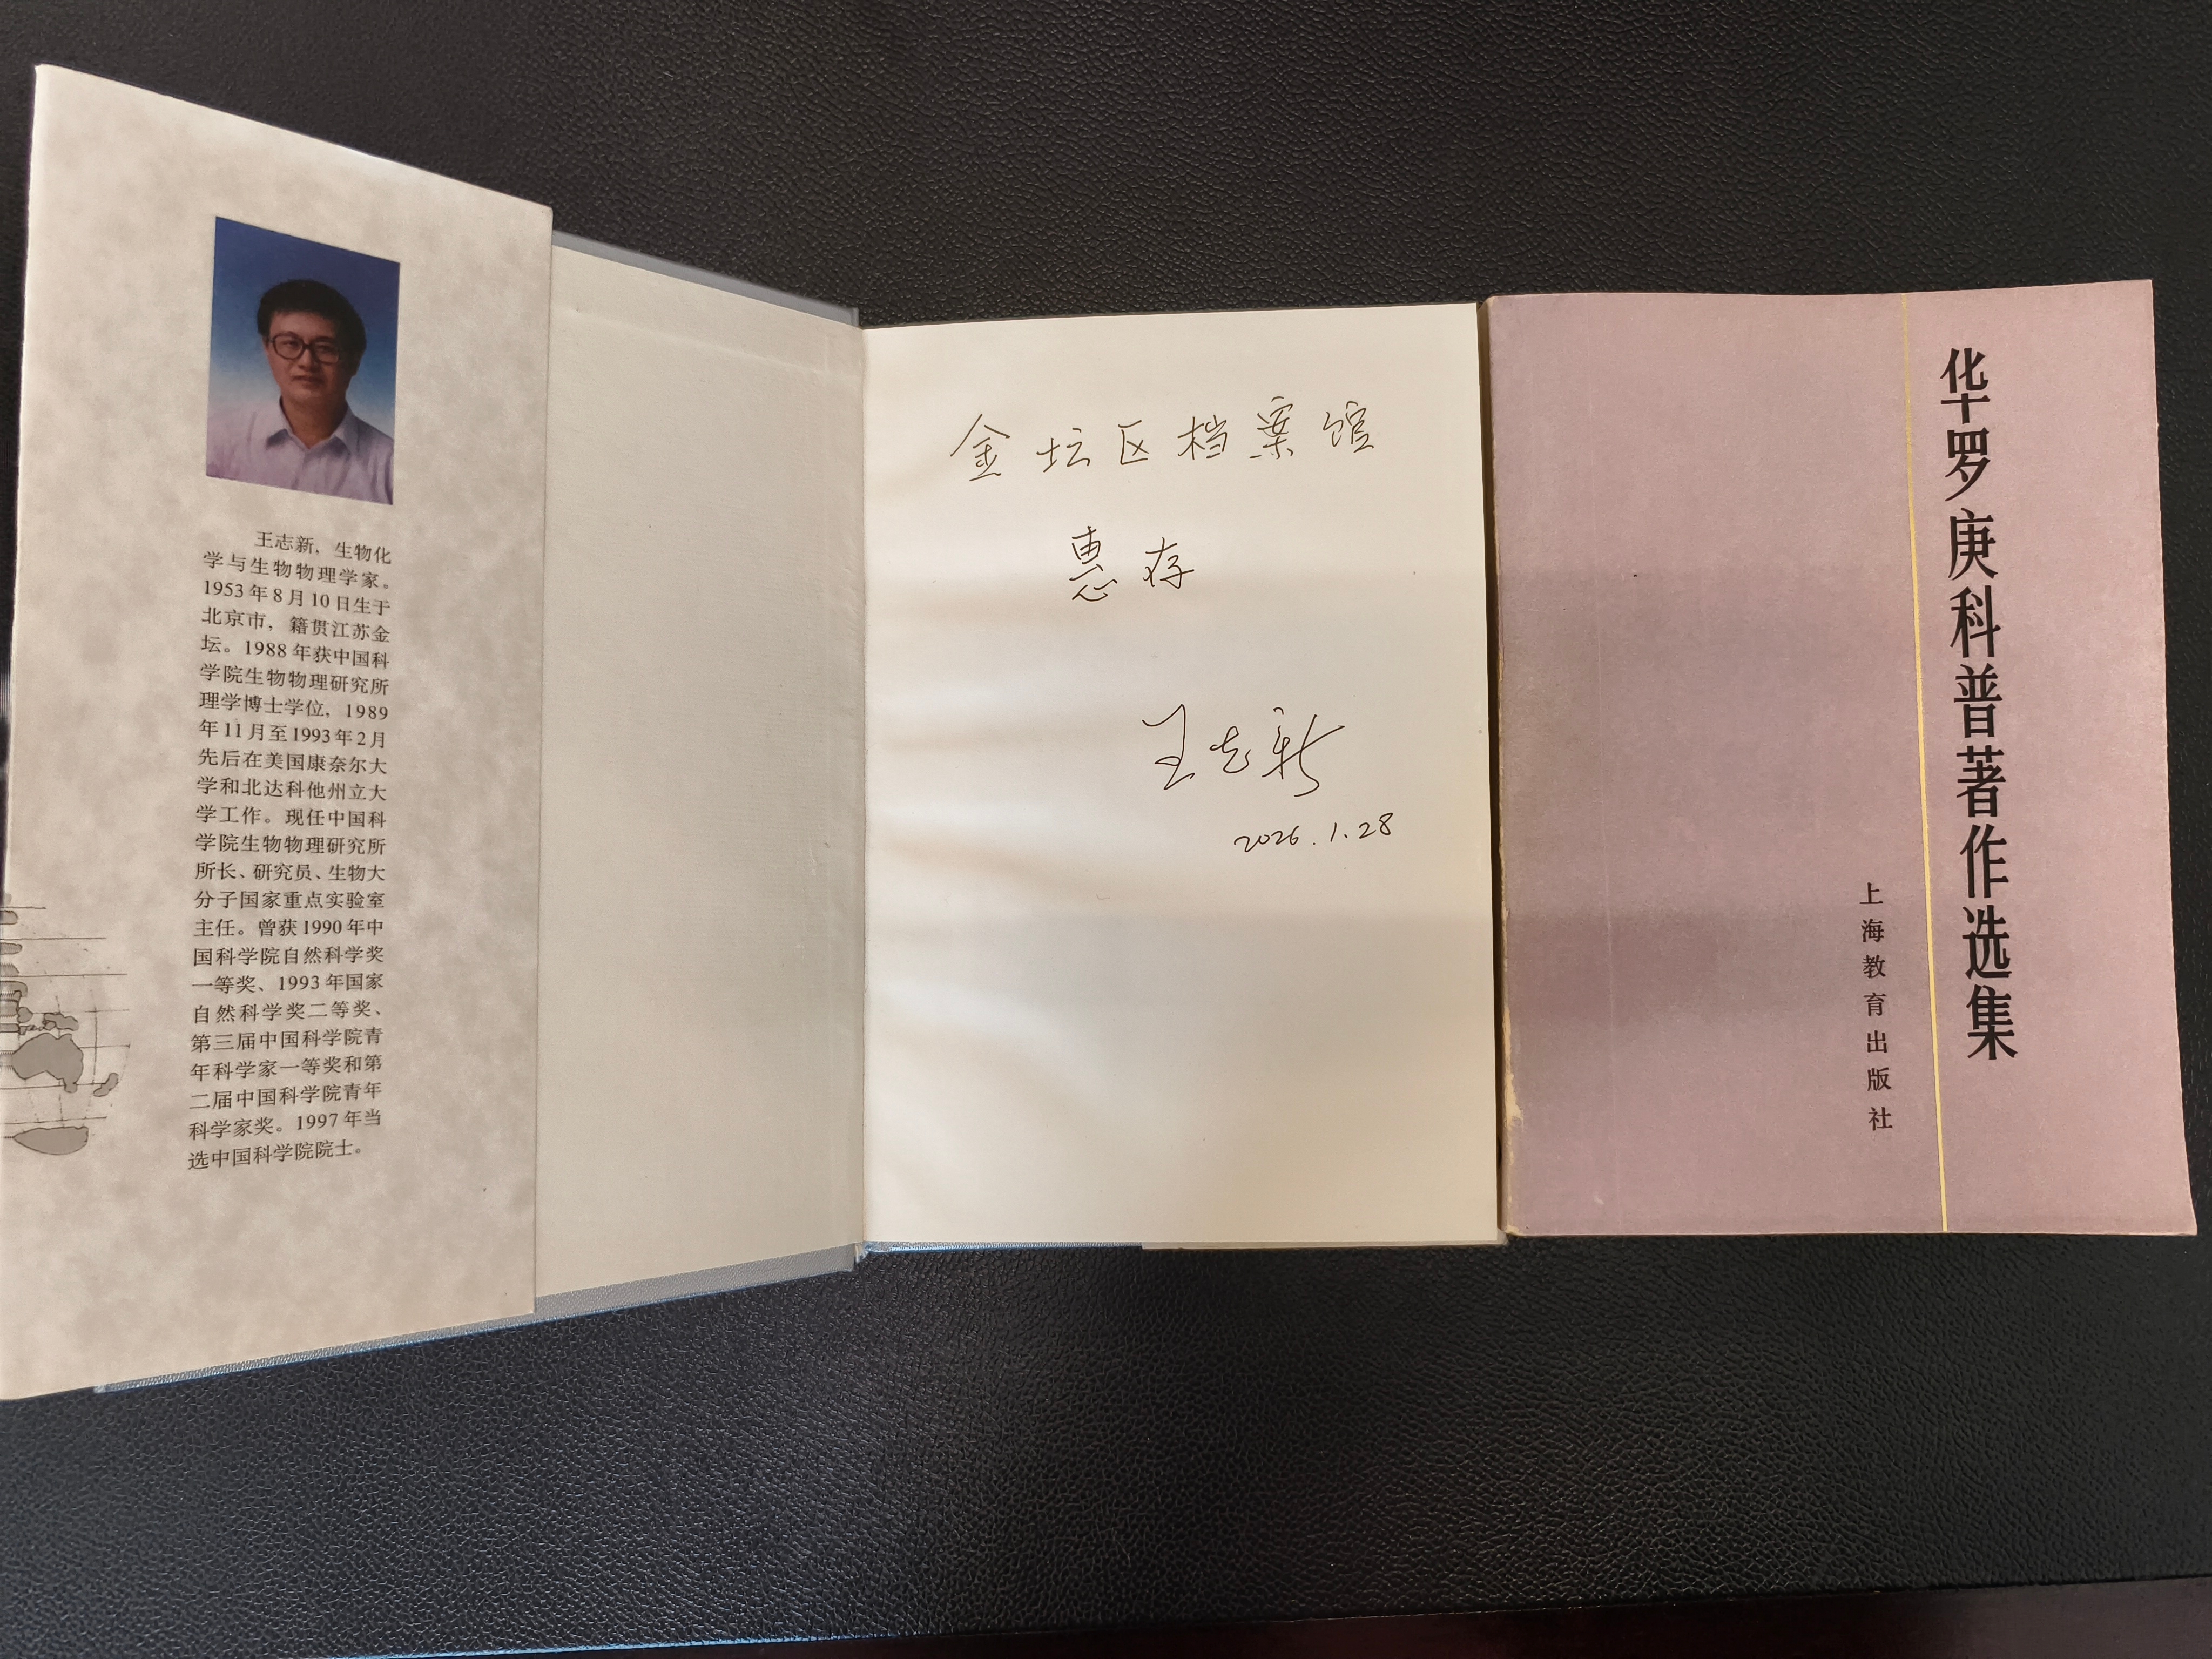 王志新，生物化
学与生物物理学家。
1953年8月10日生于
北京市，籍贯江苏金
坛。1988年获中国科
学院生物物理研究所
理学博士学位，1989
年11月至1993年2月
先后在美国康奈尔大
学和北达科他州立大
学工作。现任中国科
学院生物物理研究所
所长、研究员、生物大
分子国家重点实验室
主任。曾获1990年中
国科学院自然科学奖
一等奖、1993年国家
自然科学奖二等奖、
第三届中国科学院青
年科学家一等奖和第
二届中国科学院青年
科学家奖。1997年当
选中国科学院院士。
金坛区档案馆
惠存
王志新
2026.1.28
华罗庚科普著作选集
上海教育出版社